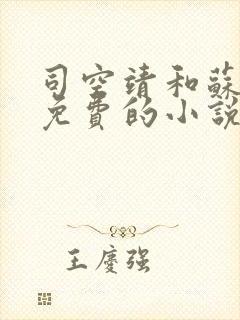 司空靖和蘇
免費的小說
王慶強